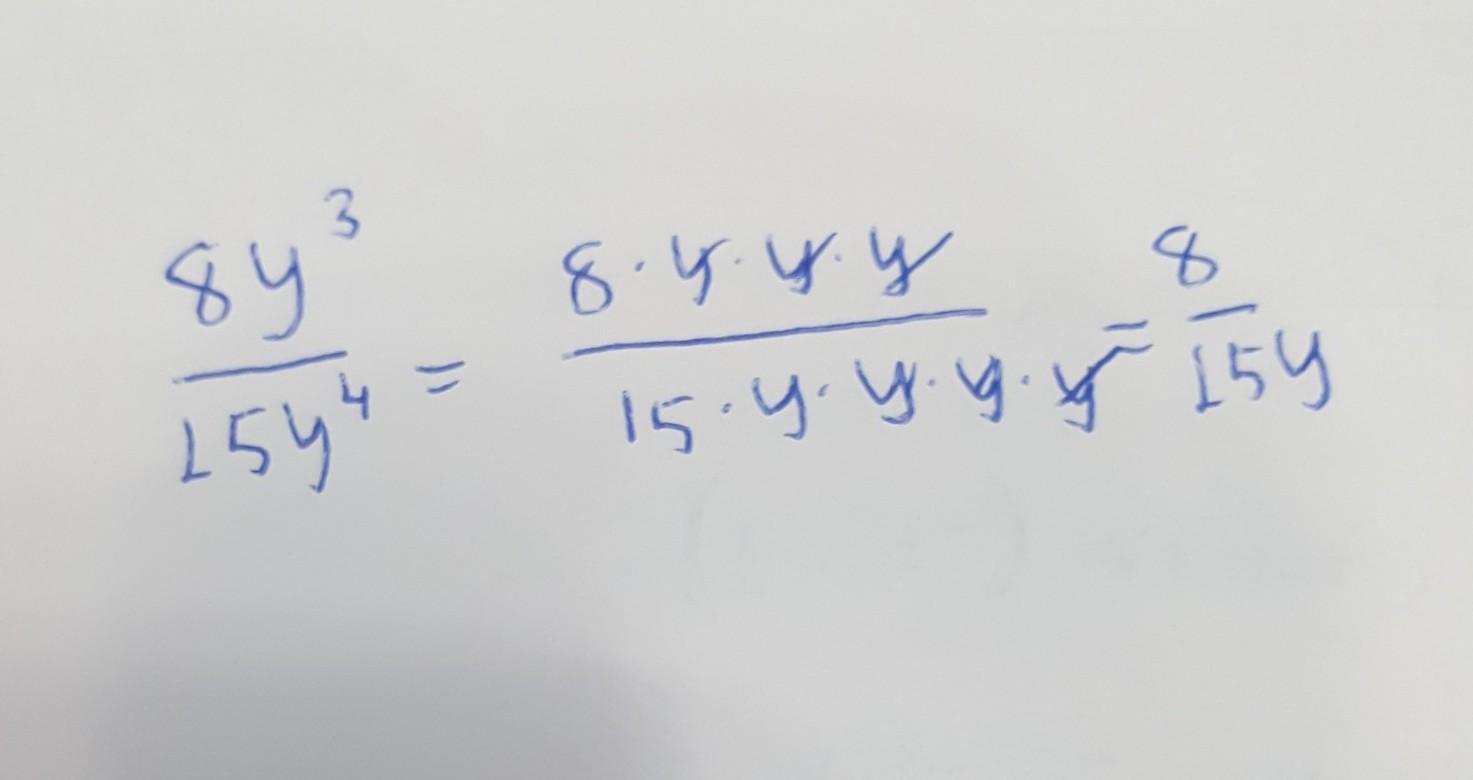 8y³/15y⁴ = 8·y·y·y/15·y·y·y·y = 8/15y